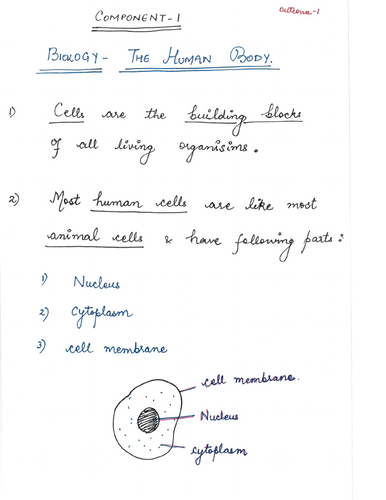 COMPONENT-1
outcome-1
BIOLOGY- THE HUMAN BODY.
1) Cells are the building blocks
of all living organisims.
2) Most human cells are like most
animal cells & have following parts:
1) Nucleus
2) Cytoplasm
3) cell membrane
cell membrane.
Nucleus
cytoplasm